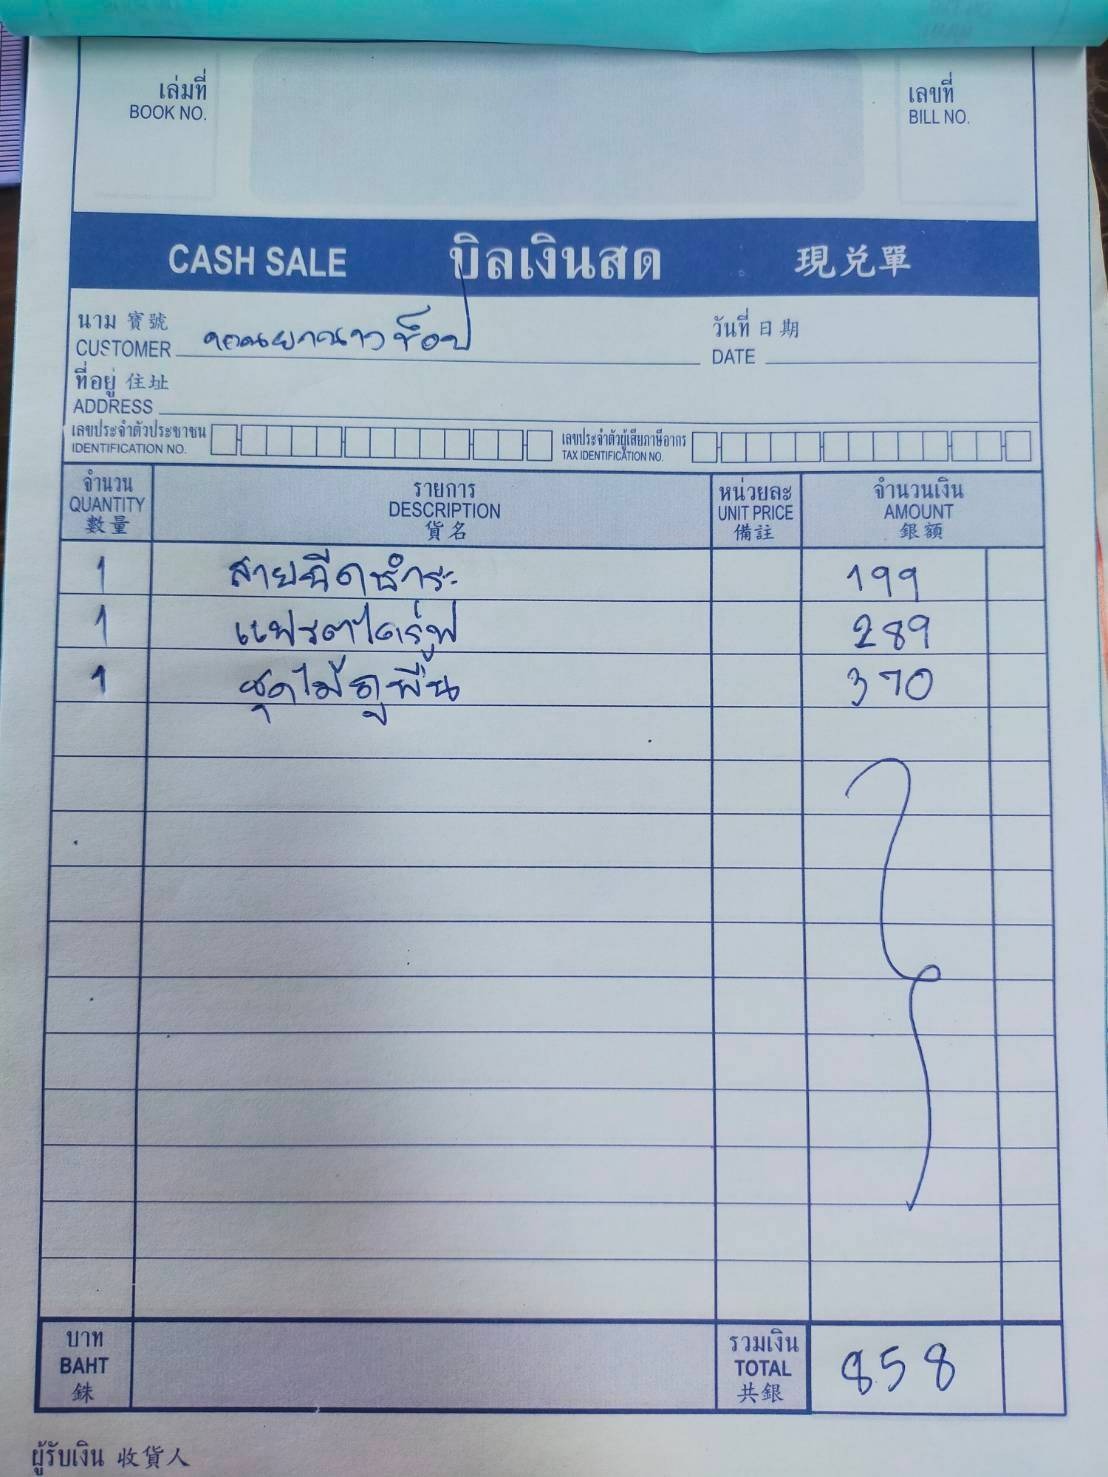 เล่มที่
BOOK NO.
เลขที่
BILL NO.
CASH SALE บิลเงินสด 現兑單
นาม 寶號
CUSTOMER ช็อป
วันที่ 日期
DATE
ที่อยู่ 住址
ADDRESS
เลขประจำตัวประชาชน
IDENTIFICATION NO.
เลขประจำตัวผู้เสียภาษีอากร
TAX IDENTIFICATION NO.
จำนวน
QUANTITY
數量
รายการ
DESCRIPTION
貨名
หน่วยละ
UNIT PRICE
備註
จำนวนเงิน
AMOUNT
銀額
1 สายฉีดชำระ 199
1 289
1 ชุดไม้ถูพื้น 370
บาท
BAHT
銖
รวมเงิน
TOTAL
共銀
858
ผู้รับเงิน 收貨人